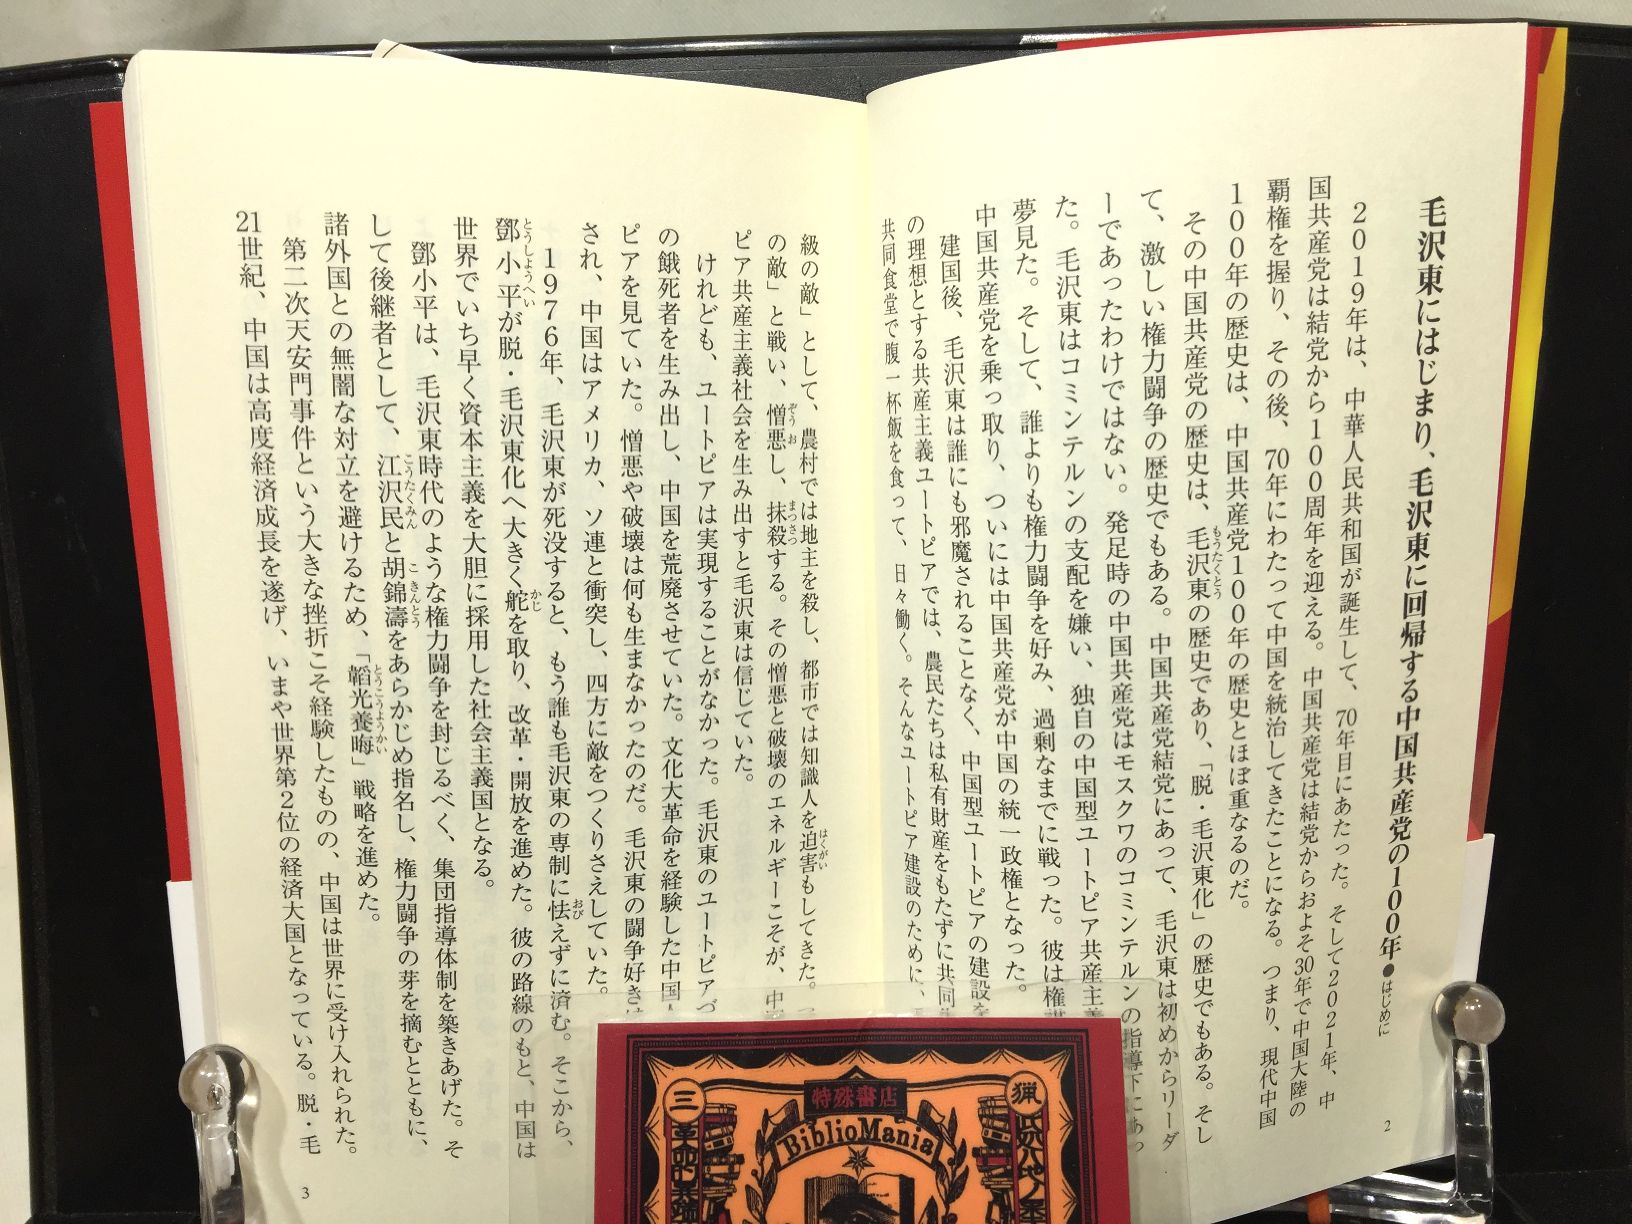 毛沢東にはじまり、毛沢東に回帰する中国共産党の100年●はじめに
2019年は、中華人民共和国が誕生して、70年目にあたった。そして2021年、中
国共産党は結党から100周年を迎える。中国共産党は結党からおよそ30年で中国大陸の
覇権を握り、その後、70年にわたって中国を統治してきたことになる。つまり、現代中国
100年の歴史は、中国共産党100年の歴史とほぼ重なるのだ。
その中国共産党の歴史は、毛沢東の歴史であり、「脱・毛沢東化」の歴史でもある。そし
て、激しい権力闘争の歴史でもある。中国共産党結党にあって、毛沢東は初めからリーダ
ーであったわけではない。発足時の中国共産党はモスクワのコミンテルンの指導下にあっ
た。毛沢東はコミンテルンの支配を嫌い、独自の中国型ユートピア共産主義
夢見た。そして、誰よりも権力闘争を好み、過剰なまでに戦った。彼は権謀
中国共産党を乗っ取り、ついには中国共産党が中国の統一政権となった。
建国後、毛沢東は誰にも邪魔されることなく、中国型ユートピアの建設を
の理想とする共産主義ユートピアでは、農民たちは私有財産をもたずに共同
共同食堂で腹一杯飯を食って、日々働く。そんなユートピア建設のために、
2
級の敵」として、農村では地主を殺し、都市では知識人を迫害もしてきた。
の敵」と戦い、憎悪し、抹殺する。その憎悪と破壊のエネルギーこそが、中
ピア共産主義社会を生み出すと毛沢東は信じていた。
けれども、ユートピアは実現することがなかった。毛沢東のユートピアづ
の餓死者を生み出し、中国を荒廃させていた。文化大革命を経験した中国
ピアを見ていた。憎悪や破壊は何も生まなかったのだ。毛沢東の闘争好き
され、中国はアメリカ、ソ連と衝突し、四方に敵をつくりさえしていた。
1976年、毛沢東が死没すると、もう誰も毛沢東の専制に怯えずに済む。そこから、
鄧小平が脱・毛沢東化へ大きく舵を取り、改革・開放を進めた。彼の路線のもと、中国は
世界でいち早く資本主義を大胆に採用した社会主義国となる。
鄧小平は、毛沢東時代のような権力闘争を封じるべく、集団指導体制を築きあげた。そ
して後継者として、江沢民と胡錦濤をあらかじめ指名し、権力闘争の芽を摘むとともに、
諸外国との無闇な対立を避けるため、「韜光養晦」戦略を進めた。
第二次天安門事件という大きな挫折こそ経験したものの、中国は世界に受け入れられた。
21世紀、中国は高度経済成長を遂げ、いまや世界第2位の経済大国となっている。脱・毛
3
特殊書店
BiblioMania
猟
三